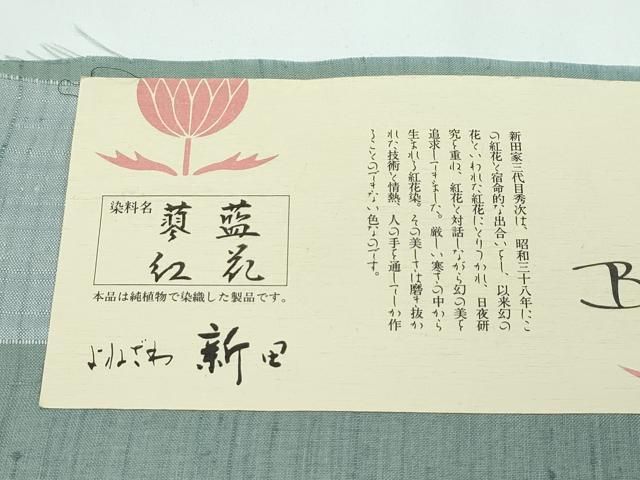 染料名
藍 蓼
花 紅
本品は純植物で染織した製品です。
よねざわ 新田
新田家三代目秀次は、昭和三十八年にこ
の紅花と宿命的な出合いをし、以来幻の
花といわれた紅花にとりつかれ、日夜研
究を重ね、紅花と対話しながら幻の美を
追求してきました。厳しい寒さの中から
生まれる紅花染。その美しさは磨き抜か
れた技術と情熱、人の手を通してしか作
ることのできない色なのです。
B